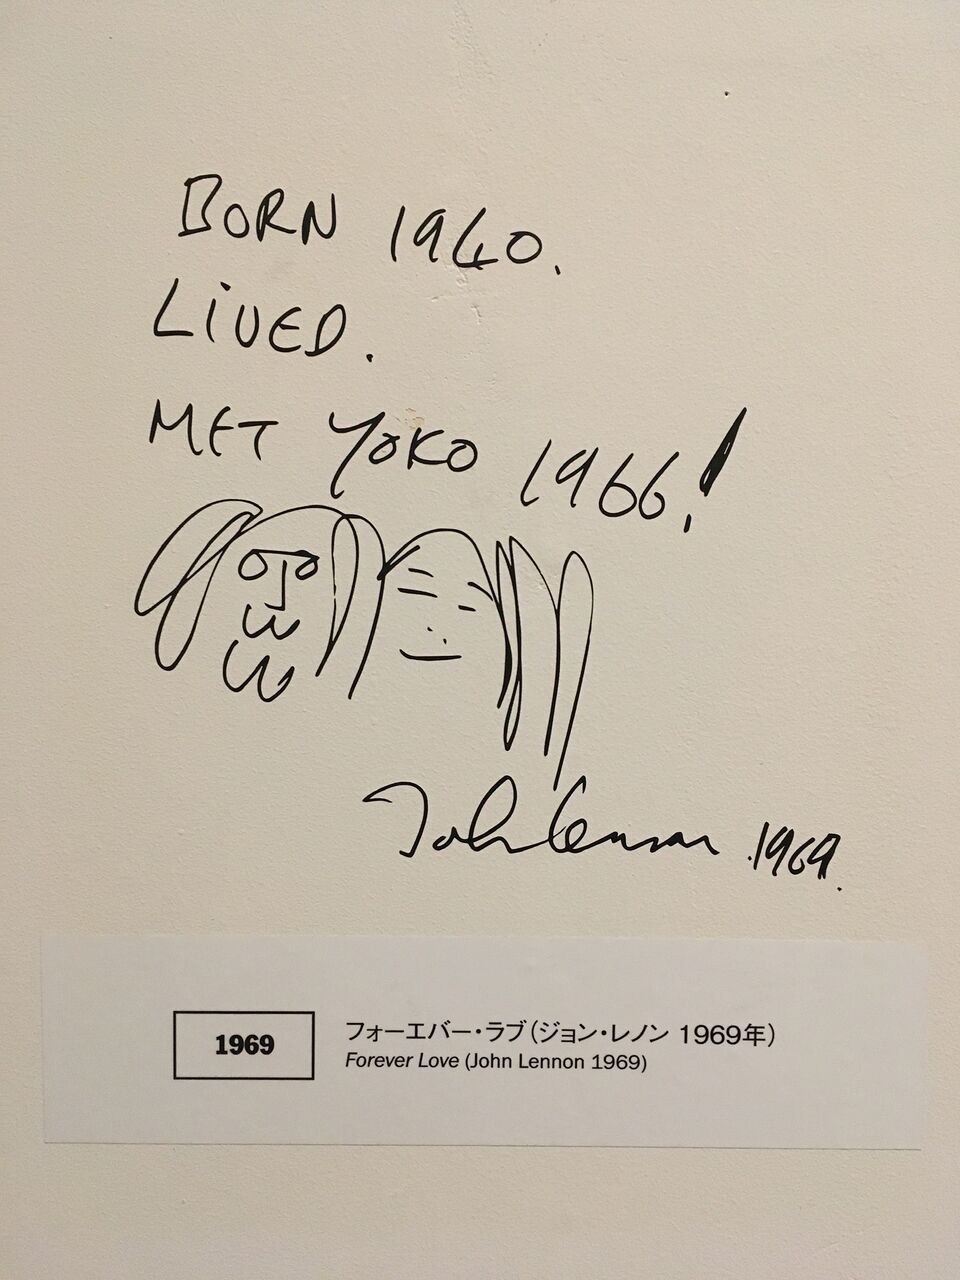 BORN 1940.
LiVED.
MET YOKO 1966!
John Lennon 1969.
1969
フォーエバー・ラブ(ジョン・レノン 1969年)
Forever Love (John Lennon 1969)